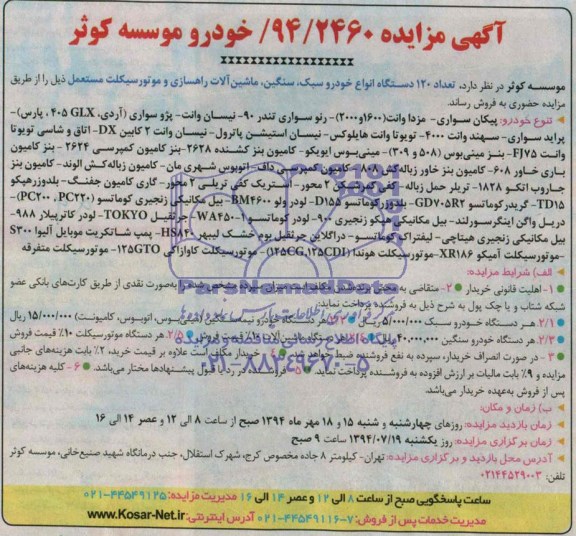 آگهی مزایده ۹۴/۲۴۶۰/ خودرو موسسه کوثر
موسسه کوثر در نظر دارد، تعداد ۱۲۰ دستگاه انواع خودرو سبک، سنگین، ماشین‌آلات راهسازی و موتورسیکلت مستعمل ذیل را از طریق
مزایده حضوری به فروش رساند.
تنوع خودرو: پیکان سواری- مزدا وانت (۱۶۰۰و۲۰۰۰)- رنو سواری تندر ۹۰- نیسان وانت- پژو سواری (آردی، GLX ۴۰۵، پارس)-
پراید سواری- سهند وانت ۴۰۰۰- تویوتا وانت هایلوکس- نیسان استیشن پاترول- نیسان وانت ۲ کابین DX- اتاق و شاسی تویوتا
وانت FJ۷۵- بنز مینی‌بوس (۵۰۸ و ۳۰۹)- مینی‌بوس ایویکو- کامیون بنز کشنده ۲۶۲۸- بنز کامیون کمپرسی ۲۶۲۴- بنز کامیون
باری خاور ۶۰۸- کامیون بنز خاور زباله‌کش ۸۰۸- کامیون کمپرسی داف- اتوبوس شهری مان- کامیون زباله‌کش الوند- کامیون بنز
جاروب اتکو ۱۸۲۸- تریلر حمل زباله- کفی کمرشکن ۲ محور- استریک کفی تریلی ۲ محور- گاری کامیون جفنگ- بلدوزرهپکو
TD۱۵- گریدر کوماتسو GD۷۰۵R۲- بلدوزر کوماتسو D۱۵۵- لودر ولو BM۴۶۰۰- بیل مکانیکی زنجیری کوماتسو (PC۲۲۰، PC۲۰۰)-
دریل واگن اینگرسورلند- بیل مکانیکی هپکو زنجیری ۹۰- لودر کوماتسو WA۴۵۰-۱- جرثقیل TOKYO- لودر کاترپیلار ۹۸۸-
بیل مکانیکی زنجیری هیتاچی- لیفتراک کوماتسو- دراگلاین جرثقیل بوم خشک لیبهر HS۸۴۰- پمپ شاتکریت موبایل آلیوا S۳۰۰
-موتورسیکلت آمیکو XR۱۸۶-موتورسیکلت هوندا (۱۲۵CG,۱۲۵CDI)- موتورسیکلت کاوازاکی ۱۲۵GTO- موتورسیکلت متفرقه
الف) شرایط مزایده:
۱- اهلیت قانونی خریدار ۲- متقاضی به صورت نقدی از طریق کارت‌های بانکی عضو
شبکه شتاب و یا چک پول به شرح ذیل به فروشنده پرداخت نماید:
۲/۱. هر دستگاه خودرو سبک ۵/۰۰۰/۰۰۰ ریال ۲/۲. هر دستگاه خودرو نیمه سنگین (مینی‌بوس، اتوبوس، کامیونت) ۱۵/۰۰۰/۰۰۰ ریال
۲/۳. هر دستگاه خودرو سنگین ۲۰,۰۰۰,۰۰۰ ریال ۲/۵. هر دستگاه موتورسیکلت ۱۰٪ قیمت فروش
۳- در صورت انصراف خریدار، سپرده به نفع فروشنده ضبط خواهد شد. ۴- خریدار مکلف است علاوه بر قیمت خرید، ۲٪ بابت هزینه‌های جانبی
مزایده و ۹٪ بابت مالیات بر ارزش افزوده به فروشنده پرداخت نماید. ۵- فروشنده در رد یا قبول پیشنهادها مختار می‌باشد. ۶- کلیه هزینه‌های
پس از فروش به‌عهده خریدار می‌باشد.
ب) زمان و مکان:
زمان بازدید مزایده: روزهای چهارشنبه و شنبه ۱۵ و ۱۸ مهر ماه ۱۳۹۴ صبح از ساعت ۸ الی ۱۲ و عصر ۱۴ الی ۱۶
زمان برگزاری مزایده: روز یکشنبه ۱۳۹۴/۰۷/۱۹ ساعت ۹ صبح
آدرس محل بازدید و برگزاری مزایده: تهران- کیلومتر ۸ جاده مخصوص کرج، شهرک استقلال، جنب درمانگاه شهید صنیع‌خانی، موسسه کوثر
تلفن: ۰۲۱۴۴۵۲۹۰۰۳
ساعت پاسخگویی صبح از ساعت ۸ الی ۱۲ و عصر ۱۴ الی ۱۶ مدیریت مزایده: ۴۴۵۴۹۱۲۵-۰۲۱
مدیریت خدمات پس از فروش: ۷-۴۴۵۴۹۱۱۶-۰۲۱ آدرس اینترنتی: www.Kosar-Net.ir
ParsNamadData
۰۲۱-۸۸۳۴۹۶۷۰-۵